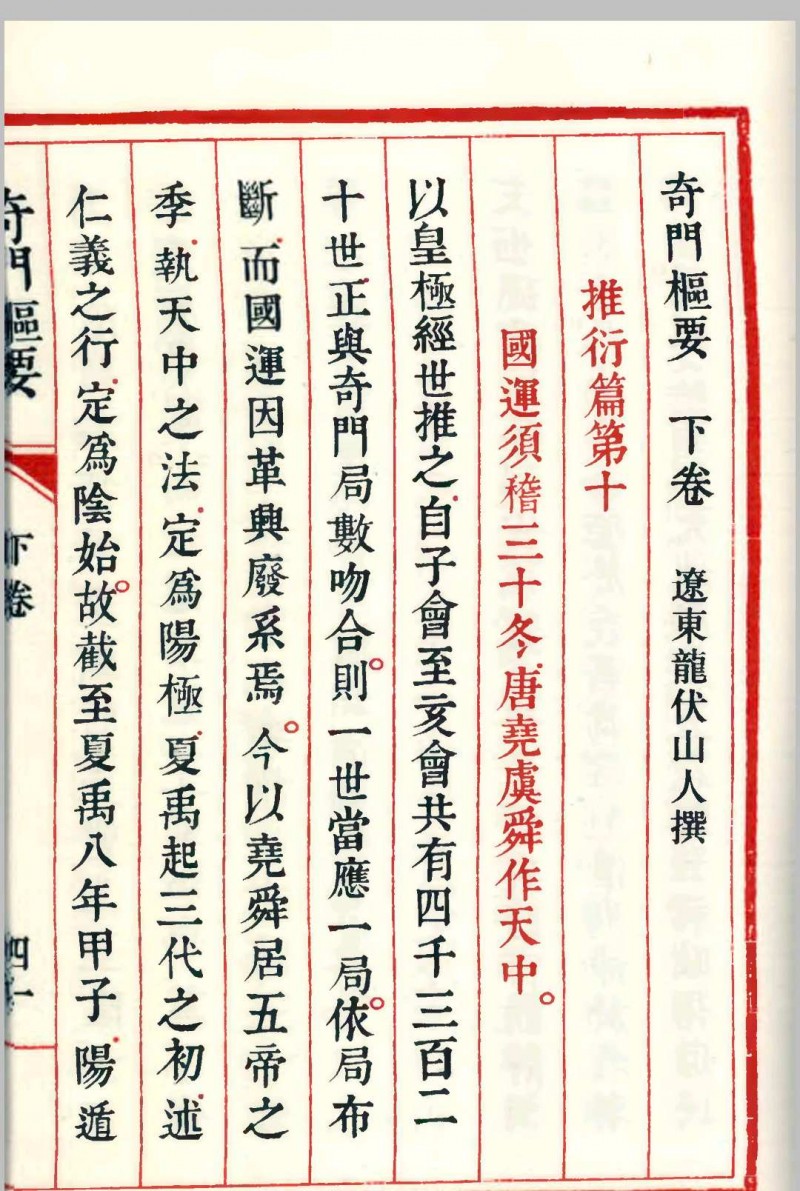 奇門樞要 下卷 遼東龍伏山人撰
推衍篇第十
國運須稽三十冬、唐堯虞舜作天中。
以皇極經世推之、自子會至亥會共有四千三百二
十世、正與奇門局數吻合。則一世當應一局。依局布
斷、而國運因革興廢系焉。今以堯舜居五帝之
季、執天中之法、定為陽極、夏禹起三代之初、述
仁義之行、定為陰始。故截至夏禹八年甲子、陽遁
奇門樞要 下卷 四十一